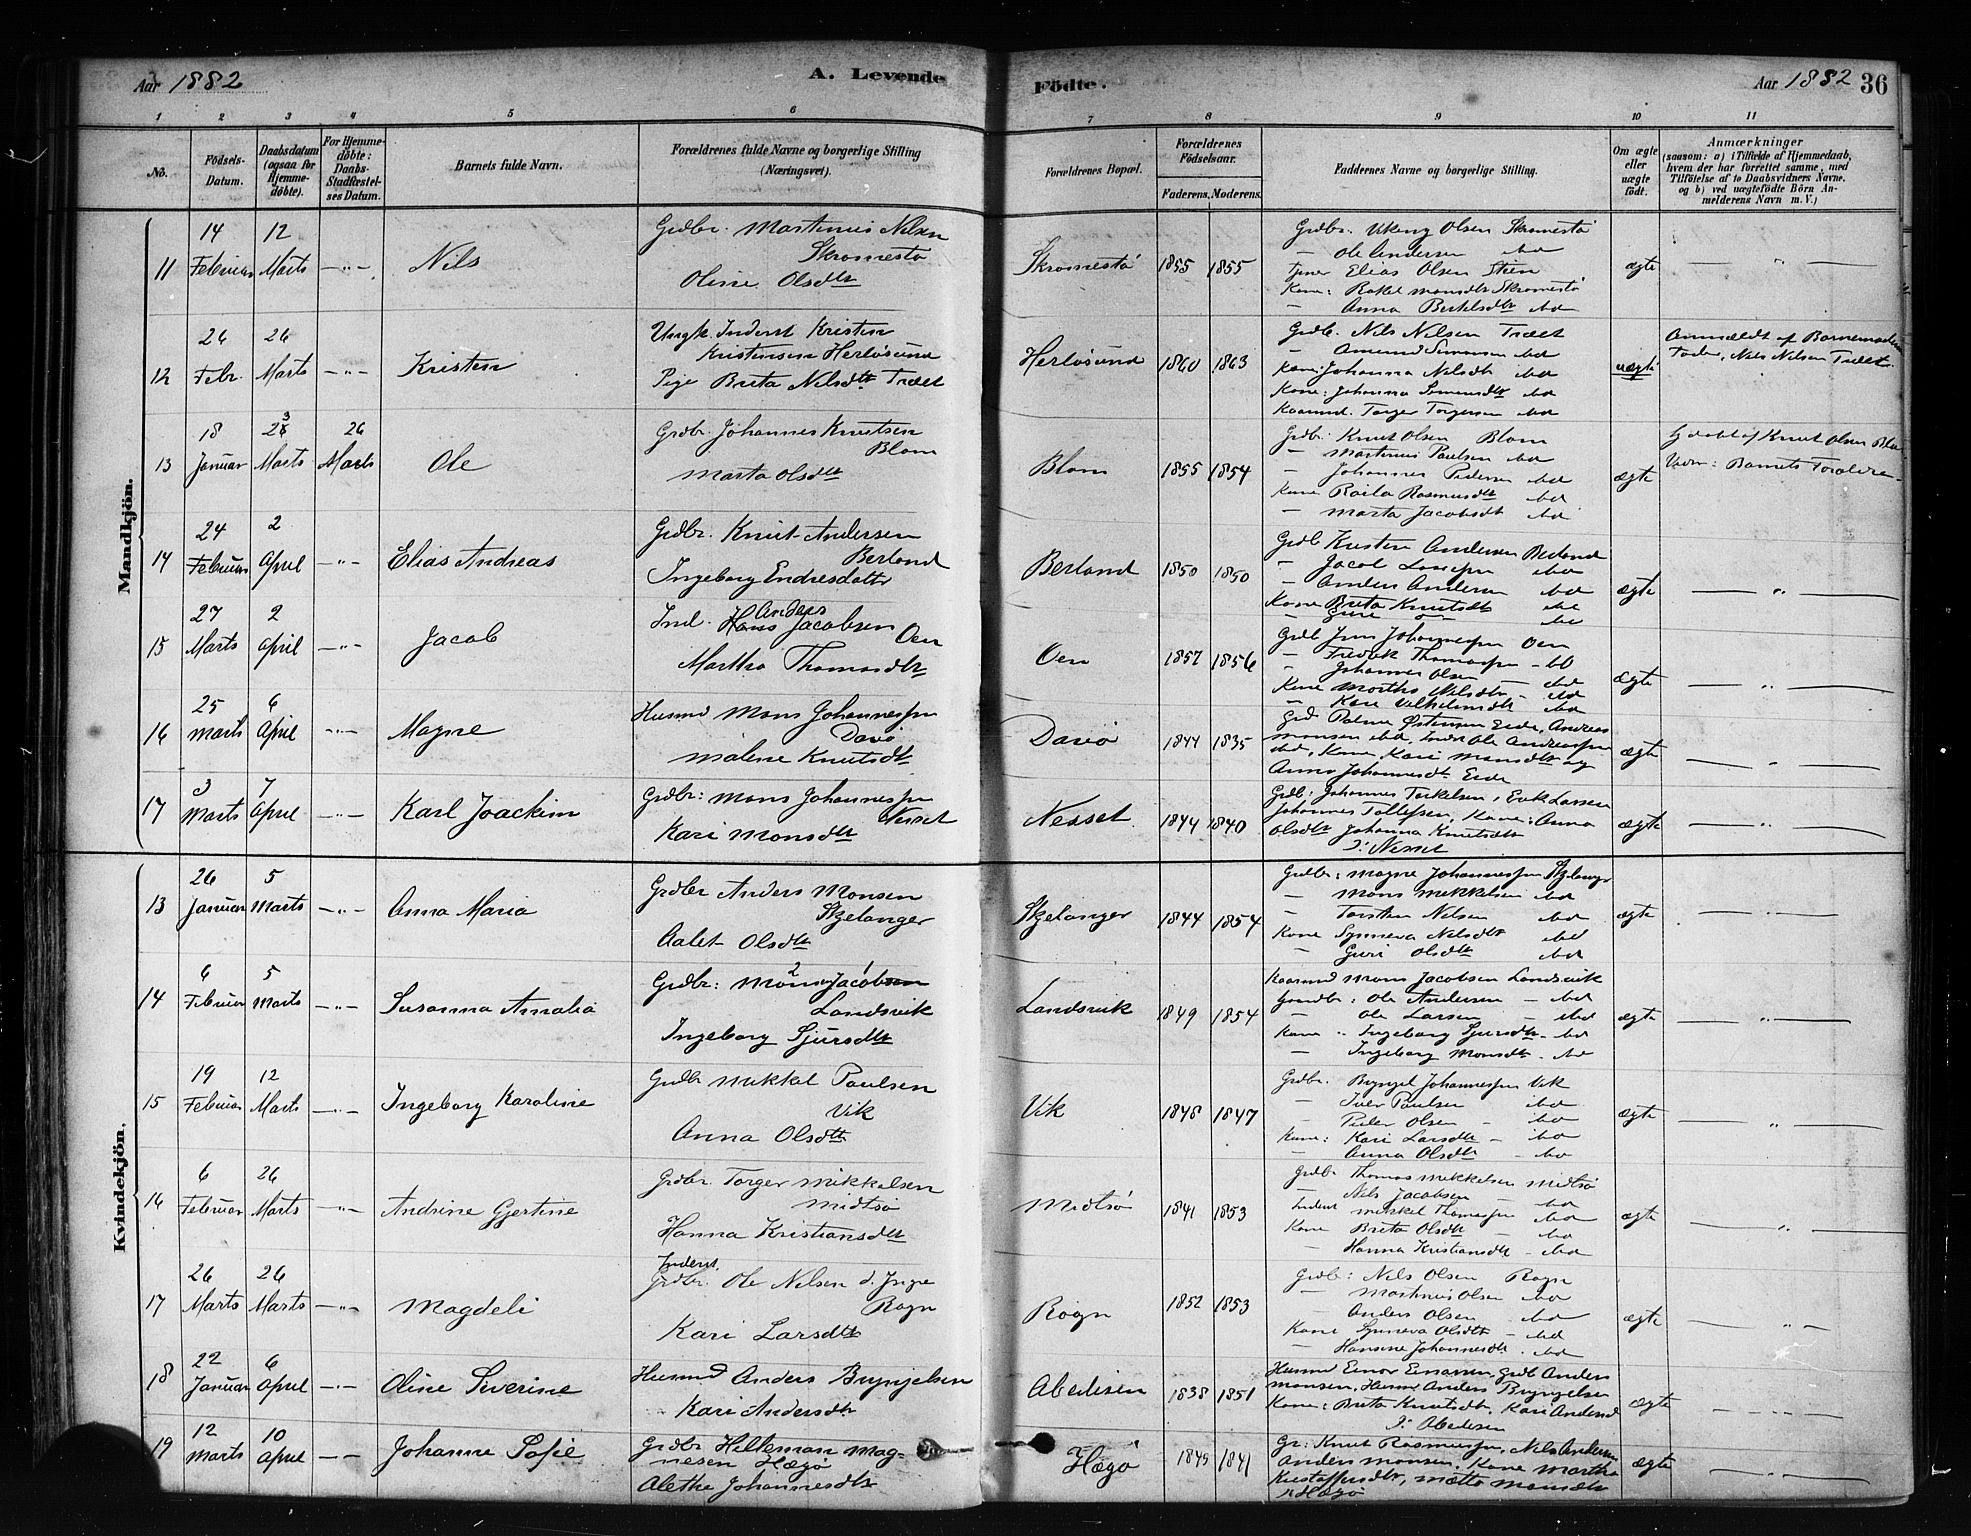 Aar 1882
A. Levende
Födte.
Aar 1882 36
1 2 3 4 5 6 7 8 9 10 11
No.
Födsels-Datum.
Daabsdatum (ogsaa for Hjemme-döbte).
For Hjemme-döbte: Daabs-Stadfæstel-ses Datum.
Barnets fulde Navn.
Forældrenes fulde Navne og borgerlige Stilling (Næringsvei).
Forældrenes Bopæl.
Forældrenes Födselsaar.
Faderens. Moderens.
Faddernes Navne og borgerlige Stilling.
Om ægte eller uægte födt.
Anmærkninger
(saasom: a) i Tilfælde af Hjemmedaab, hvem der har forrettet samme, med Tilföielse af to Daabsvidners Navne. og b) ved uægtefödte Börn An-melderens Navn m. V.)
Mandkjön.
11 14 Februar 12 Marts —"— Nils
Grdbr. Martinus Nilsen
Skromestø
Oline Olsdtr
Skromestø 1855 1855
Grdbr. Viking Olsen Skromestø
— Ole Andersen ibd
tjener Elias Olsen Steen
Kone: Rakel Monsdtr Skromestø
— Anna Bertelsdtr ibd
ægte — " —
12 26 Febr. 26 Marts —"— Kristen
Ungk. Inderst Kristen
Kristensen Herløsund
Pige Brita Nilsdtr Træet
Herløsund 1860 1863
Grdb. Nils Nilsen Træet
— Amund Simonsen ibd
Kone: Johanna Nilsdt ibd
Kone: Johanna Simonsdtr ibd
Kaarmd. Torger Torgersen ibd
uægte
Anmeldt af Barnemoderens
Fader, Nils Nilsen Træet.
13 18 Januar 23 Marts 26 Marts Ole
Grdbr. Johannes Knutsen
Blom
Marta Olsdtr
Blom 1855 1854
Grdbr: Knut Olsen Blom
— Martinus Paulsen ibd
— Johannes Pedersen ibd
Kone Rasmusdtr ibd
— Marta Jacobsdt ibd
ægte
af Knut Olsen
Barnets Forældre
14 24 Februar 2 April —"— Elias Andreas
Grdbr. Knut Andersen
Berland
Ingeborg Endresdatter
Berland 1850 1850
Grdb Kristen Andersen Berland
— Jacob ibd
— Anders Andersen ibd
Kone Brita Knutsdtr ibd
— Guri ibd
ægte — " —
15 27 Marts 2 April —"— Jacob
Ind. Anders Jacobsen
Oen
Martha Thomasdtr
Oen 1857 1856
Grdb Jens Johannessen Oen
— Fredrik Thomassen — ibd
— Johannes Olsen — ibd
Kone Martha Nilsdtr — ibd
— Kari Vilhelmsdtr ibd
ægte — " —
16 25 Marts 6 April —"— Magne
Husmd Mons Johannessen
Davø
Malene Knutsdtr
Davø 1844 1835
Grd Østensen Eide, Andreas
Monsen ibd, Inder Ole Andreassen
ibd, Kone Kari Monsdtr og
Anna Johannesdt Eide
ægte — " —
17 3 Marts 7 April —"— Karl Joackim
Grdbr: Mons Johannessen
Nesset
Kari Monsdtr
Nesset. 1844 1840
Grdb: Johannes Torkelsen, Erik Larsen
Johannes Tollefsen, Kone: Anna
Olsdtr Johanna Knutsdtr
i Nesset
ægte — " —
Kvindekjön.
13 26 Januar 5 Marts —"— Anna Maria
Grdbr Anders Monsen
Skjelanger
Aalet Olsdtr
Skjelanger 1844 1854
Grdbr: Magne Johannessen Skjelanger
— Mons Mikkelsen ibd
— Torsten Nilsen ibd
Kone Synneva Nilsdtr ibd
— Guri Olsdtr ibd
ægte — " —
14 6 Februar 5 Marts —"— Susanna Amalia
Grdbr: Mons Jacobsen
Landsvik
Ingeborg Sjursdtr
Landsvik 1849 1854
Kaarmd Mons Jacobsen Landsvik
Grundbr: Ole Andersen — ibd
— Ole Larsen — ibd
Kone " Ingeborg Sjursdtr — ibd
— Ingeborg Monsdt — ibd
ægte — " —
15 19 Februar 12 Marts —"— Ingeborg Karoline
Grdbr Mikkel Paulsen
Vik
Anna Olsdtr
Vik 1848 1847
Grdbr. Brynjel Johannessen Vik
— Iver Paulsen ibd
— Peder Olsen — ibd
Kone: Kari Larsdtr — ibd
— Anna Olsdtr — ibd
ægte — " —
16 6 Februar 26 Marts —"— Andrine Gjertine
Grdbr. Torger Mikkelsen
Midtsø
Hanna Kristiansdtr
Midtsø 1841 1853
Grdb. Thomas Mikkelsen Midtsø
— Nils Jacobsen — ibd
Inderst Mikkel Thomassen ibd
Kone Brita Olsdtr — ibd
— Hanna Kristiansdt — ibd
ægte — " —
17 26 Marts 26 Marts —"— Magdeli
Inderst
Grdbr. Ole Nilsen d. Ynge
Rogn
Kari Larsdtr
Rogn 1852 1853
Grdb: Nils Olsen Rogn
— Martinus Olsen ibd
— Anders Olsen ibd
Kone Synneva Olsdtr — ibd
— Hansine Johannesdt. ibd
ægte — " —
18 22 Januar 6 April —"— Oline Severine
Husmd Anders Brynjelsen
Kari Andersdtr
Abedisen 1838 1851
Husmd Einar Einarsen, Grdb Anders
Monsen, Husm Anders Brynjelsen
Kone: Brita Knutsdt, Kari Andersd
i Abedisen
ægte — " —
19 12 Marts 10 April —"— Johanne Sofie
Grdbr Hilleman Mag-
nesen Hægø
Alethe Johannesdtr
Hægø 1849 1841
Gr: Knut Rasmussen, Nils Andersen
Anders Monsen, Kone Martha
Kristoffersdtr, Mætte Monsdtr
i Hægø
ægte — " —